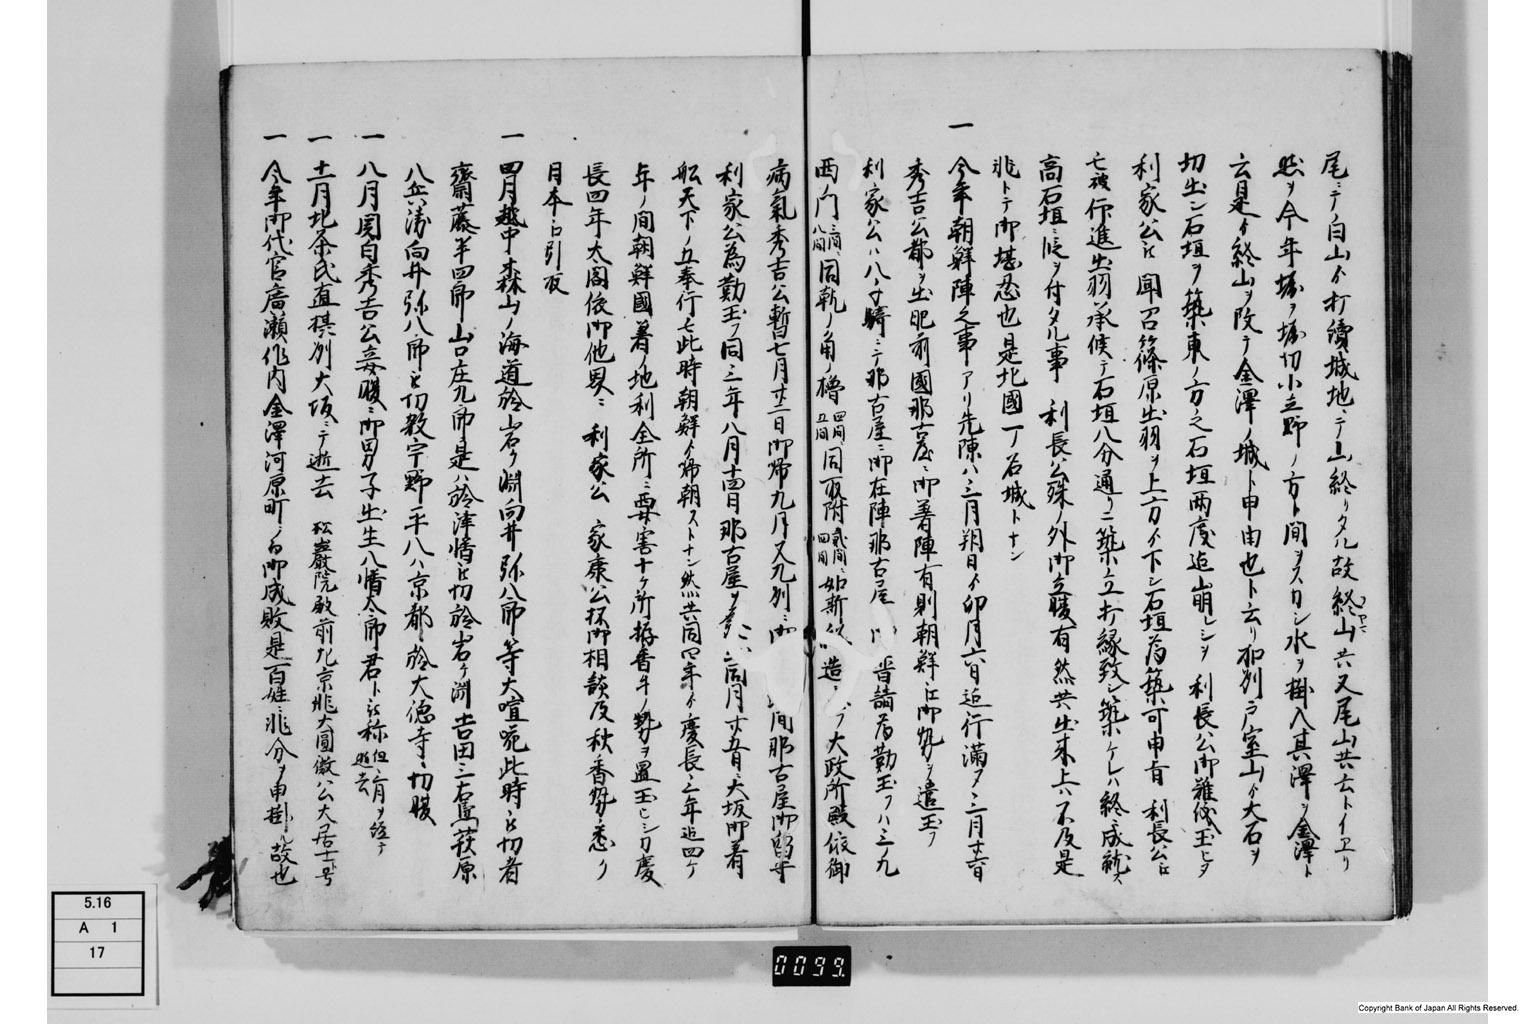 尾ニテ白山ゟ打續城地ニテ山終リタル故終山共又尾山共云トイヱリ
然ヲ今年堀ヲ堀切小立野ノ方ト間ヲスカシ水ヲ掛入其澤ヲ金澤ト
云是ゟ終山ヲ改テ金澤ノ城ト申由也ト云リ扨別戸室山ゟ大石ヲ
切出シ石垣ヲ築東ノ方之石垣両度迄山崩シヲ 利長公御難儀玉ヒヲ
利家公江聞召篠原出羽ヲ上方ゟ下シ石垣為築可申旨 利長公江
被仰進出羽承候テ石垣八分通リニ築立打縁致シ築ケレハ終ニ成就ス
高石垣ニ段ヲ付タル事 利長公殊ノ外御立腹有然共出来上ハ不及是
非トテ御堪忍也是北國一ノ名城トナン
一 今年朝鮮陣之事アリ先陳ハ三月朔日ゟ卯月六日迄行満フ三月廿六日
秀吉公都ヲ出肥前國那古屋ニ御着陣有則朝鮮江御勢ヲ遣玉フ
利家公ハ八千騎ニテ那古屋ニ御在陣那古屋 普請為勤玉フハ三ノ丸
西門 三間 八間 同軌ノ角ノ櫓 四間 五間 同取附 貳間 四間 如斯 造 大政所殿依御
病氣秀吉公暫七月廿二日御帰九月又九州ニ 間那古屋御留守
利家公為勤玉フ同三年八月十四日那古屋ヲ 同月廿五日ニ大坂御着
船天下ノ五奉行七此時朝鮮ゟ帰朝ストナン然共同四年ゟ慶長三年迄四ケ
年ノ間朝鮮國着ノ地利全所ニ要害十ケ所拵番手ノ勢ヲ置玉ヒシカ慶
長四年太閤依御他界ニ 利家公 家康公抔御相談及秋番勢悉ク
日本江引取
一 四月越中森山ノ海道於岩ケ渕向井弥八郎等大喧𠵅此時江切者
齋藤半四郎山口庄九郎是ハ於津幡江切於岩ケ渕吉田三右馬萩原
八兵衛向井弥八郎江切殺宇野平八ハ京都ニ於大徳寺ニ切腹
一 八月関白秀吉公妾腹ニ御男子出生八幡太郎君ト江称 但二月ヲ経テ 逝去
一 十一月北条氏直摂州大坂ニテ逝去 松巌院殿前左京兆大圓徹公大居士ト号
一 今年御代官廣瀬作内金澤河原町ニ而御成敗是百姓ニ非分ヲ申掛ル故也
5.16
A 1
17
0099.
Copyright Bank of Japan All Rights Reserved.